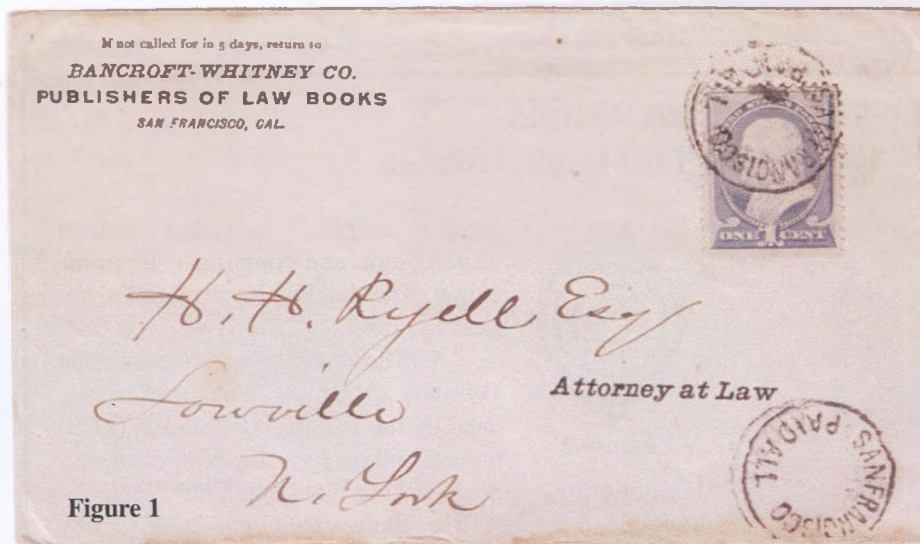 If not called for in 5 days, return to
BANCROFT-WHITNEY CO.
PUBLISHERS OF LAW BOOKS
SAN FRANCISCO, CAL.
SAN FRANCISCO PAID ALL
ONE CENT
H. H. Ryell Esq
Attorney at Law
Lowville
N. York
SAN FRANCISCO PAID ALL
Figure 1